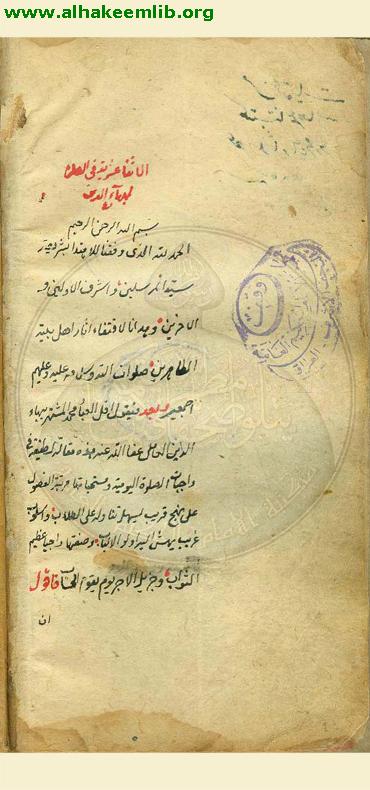 www.alhakeemlib.org
الاثنا عشرية في الصلاة
لبهاء الدين
بسم الله الرحمن الرحيم
الحمد لله الذي وفقنا للاهتدا بشريعة
سيد المرسلين واشرف الاولين و
الاخرين وهدانا لاقتفاء اثار اهل بيته
الطاهرين صلوات الله وسلامه عليه وعليهم
اجمعين وبعد فيقول اقل العباد محمد المشتهر ببهاء
الدين العاملي عفا الله عنه هذه مقالة لطيفة في
واجبات الصلوة اليومية ومستحباتها مرتبة الفصول
على نهج قريب يسهل تناوله على الطلاب واسلوب
غريب يهش اليه اولو الالباب وضعتها راجيا عظيم
الثواب وجزيل الاجر يوم يقوم الحساب فاقول
ان
وقف
الحكيم العامة